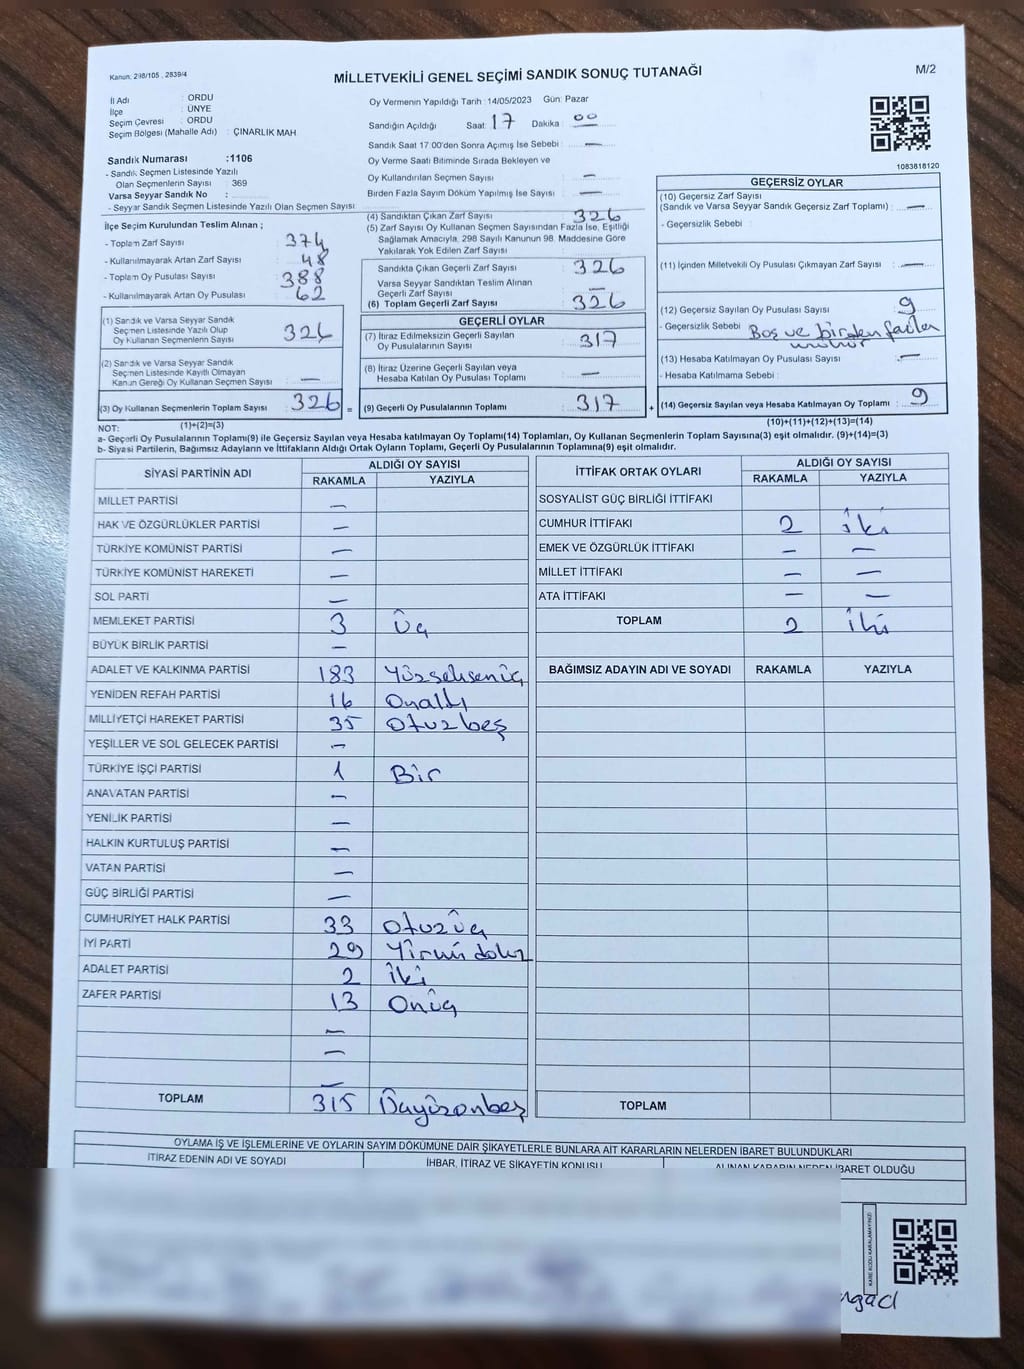 Kanun: 298/105 , 2839/4
MİLLETVEKİLİ GENEL SEÇİMİ SANDIK SONUÇ TUTANAĞI
M/2
İl Adı : ORDU
İlçe : ÜNYE
Seçim Çevresi : ORDU
Seçim Bölgesi (Mahalle Adı) : ÇINARLIK MAH
Sandık Numarası :1106
- Sandık Seçmen Listesinde Yazılı
Olan Seçmenlerin Sayısı : 369
Varsa Seyyar Sandık No :
- Seyyar Sandık Seçmen Listesinde Yazılı Olan Seçmen Sayısı
Oy Vermenin Yapıldığı Tarih :14/05/2023 Gün: Pazar
Sandığın Açıldığı Saat: 17 Dakika : 00
Sandık Saat 17:00'den Sonra Açımış İse Sebebi : —
Oy Verme Saati Bitiminde Sırada Bekleyen ve
Oy Kullandırılan Seçmen Sayısı : —
Birden Fazla Sayım Döküm Yapılmış İse Sayısı : —
1083818120
İlçe Seçim Kurulundan Teslim Alınan ;
- Toplam Zarf Sayısı : 374
- Kullanılmayarak Artan Zarf Sayısı : 48
- Toplam Oy Pusulası Sayısı : 388
- Kullanılmayarak Artan Oy Pusulası : 62
(1) Sandık ve Varsa Seyyar Sandık
Seçmen Listesinde Yazılı Olup
Oy Kullanan Seçmenlerin Sayısı : 326
(2) Sandık ve Varsa Seyyar Sandık
Seçmen Listesinde Kayıtlı Olmayan
Kanun Gereği Oy Kullanan Seçmen Sayısı : —
(3) Oy Kullanan Seçmenlerin Toplam Sayısı : 326 =
(4) Sandıktan Çıkan Zarf Sayısı : 326
(5) Zarf Sayısı Oy Kullanan Seçmen Sayısından Fazla İse, Eşitliği
Sağlamak Amacıyla, 298 Sayılı Kanunun 98. Maddesine Göre
Yakılarak Yok Edilen Zarf Sayısı :
Sandıkta Çıkan Geçerli Zarf Sayısı : 326
Varsa Seyyar Sandıktan Teslim Alınan
Geçerli Zarf Sayısı : —
(6) Toplam Geçerli Zarf Sayısı : 326
GEÇERLİ OYLAR
(7) İtiraz Edilmeksizin Geçerli Sayılan
Oy Pusulalarının Sayısı : 317
(8) İtiraz Üzerine Geçerli Sayılan veya
Hesaba Katılan Oy Pusulası Toplamı : —
(9) Geçerli Oy Pusulalarının Toplamı : 317 +
GEÇERSİZ OYLAR
(10) Geçersiz Zarf Sayısı
(Sandık ve Varsa Seyyar Sandık Geçersiz Zarf Toplamı) : —
- Geçersizlik Sebebi :
(11) İçinden Milletvekili Oy Pusulası Çıkmayan Zarf Sayısı : —
(12) Geçersiz Sayılan Oy Pusulası Sayısı : 9
- Geçersizlik Sebebi : Boş ve birden fazla
mühür
(13) Hesaba Katılmayan Oy Pusulası Sayısı : —
- Hesaba Katılmama Sebebi :
(14) Geçersiz Sayılan veya Hesaba Katılmayan Oy Toplamı : 9
NOT: (1)+(2)=(3)
(10)+(11)+(12)+(13)=(14)
a- Geçerli Oy Pusulalarının Toplamı(9) ile Geçersiz Sayılan veya Hesaba katılmayan Oy Toplamı(14) Toplamları, Oy Kullanan Seçmenlerin Toplam Sayısına(3) eşit olmalıdır. (9)+(14)=(3)
b- Siyasi Partilerin, Bağımsız Adayların ve İttifakların Aldığı Ortak Oyların Toplamı, Geçerli Oy Pusulalarının Toplamına(9) eşit olmalıdır.
SİYASİ PARTİNİN ADI ALDIĞI OY SAYISI
RAKAMLA YAZIYLA
MİLLET PARTİSİ —
HAK VE ÖZGÜRLÜKLER PARTİSİ —
TÜRKİYE KOMÜNİST PARTİSİ —
TÜRKİYE KOMÜNİST HAREKETİ —
SOL PARTİ —
MEMLEKET PARTİSİ 3 Üç
BÜYÜK BİRLİK PARTİSİ —
ADALET VE KALKINMA PARTİSİ 183 Yüzseksenüç
YENİDEN REFAH PARTİSİ 16 Onaltı
MİLLİYETÇİ HAREKET PARTİSİ 35 Otuzbeş
YEŞİLLER VE SOL GELECEK PARTİSİ —
TÜRKİYE İŞÇİ PARTİSİ 1 Bir
ANAVATAN PARTİSİ —
YENİLİK PARTİSİ —
HALKIN KURTULUŞ PARTİSİ —
VATAN PARTİSİ —
GÜÇ BİRLİĞİ PARTİSİ —
CUMHURİYET HALK PARTİSİ 33 Otuzüç
İYİ PARTİ 29 Yirmidokuz
ADALET PARTİSİ 2 İki
ZAFER PARTİSİ 13 Onüç
—
—
—
TOPLAM 315 Üçyüzonbeş
İTTİFAK ORTAK OYLARI ALDIĞI OY SAYISI
RAKAMLA YAZIYLA
SOSYALİST GÜÇ BİRLİĞİ İTTİFAKI
CUMHUR İTTİFAKI 2 İki
EMEK VE ÖZGÜRLÜK İTTİFAKI — —
MİLLET İTTİFAKI — —
ATA İTTİFAKI — —
TOPLAM 2 İki
BAĞIMSIZ ADAYIN ADI VE SOYADI RAKAMLA YAZIYLA
TOPLAM
OYLAMA İŞ VE İŞLEMLERİNE VE OYLARIN SAYIM DÖKÜMÜNE DAİR ŞİKAYETLERLE BUNLARA AİT KARARLARIN NELERDEN İBARET BULUNDUKLARI
İTİRAZ EDENİN ADI VE SOYADI İHBAR, İTİRAZ VE ŞİKAYETİN KONUSU ALINAN KARARIN NEDEN İBARET OLDUĞU
KARE KODU KARALAMAYINIZ!